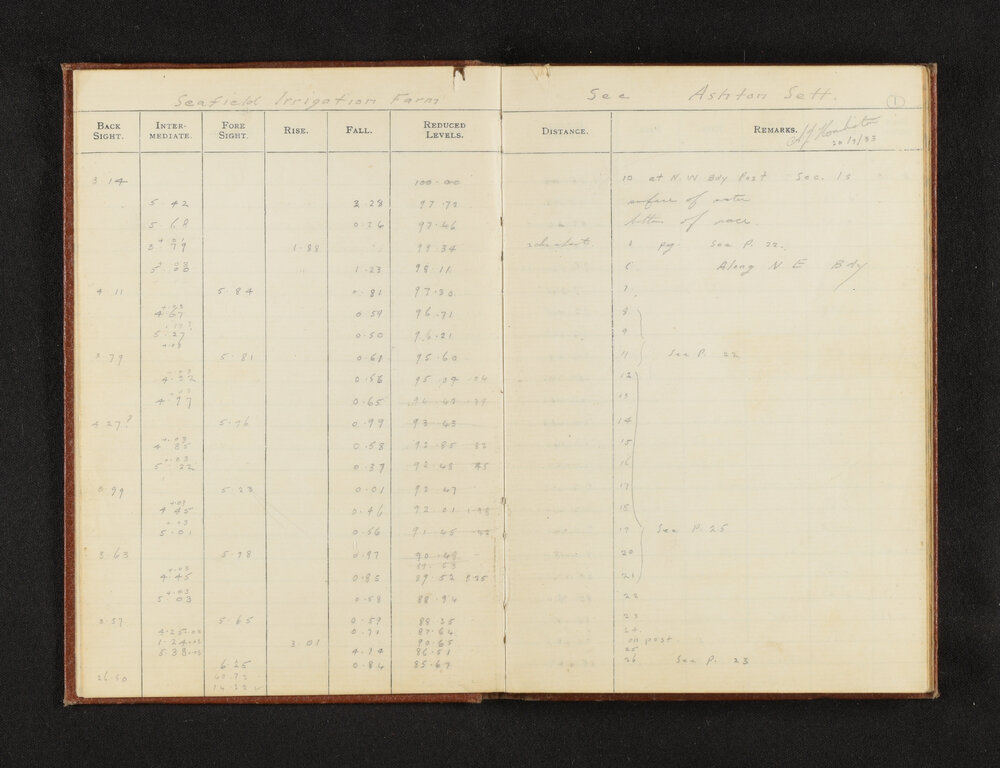 Seafield Irrigation Farm
See Ashton Sett. 1
BACK SIGHT. INTER-MEDIATE. FORE SIGHT. RISE. FALL. REDUCED LEVELS. DISTANCE. REMARKS.
20/7/33
3.14 100.00 10 at N.W Bdy Post Sec. 1s
5.42 2.28 97.72 surface of water
5.68 0.26 97.46 bottom of race.
1.88 99.34 pg. See P. 22.
1.23 98.11 Along N E Bdy
4.11 5.84 0.81 97.30 7
4.67 0.59 96.71 8
5.27 0.50 96.21 9
3.79 5.81 0.61 95.60 11 See P. 22
0.56 12
4.97 0.65 13
4.27? 0.99 93.43 14
4.85 0.58 92.85 82 15
5.22 0.37 92.48 16
0.99 5.23 0.01 92.47 17
4.45 0.46 92.01 18
5.01 0.56 91.45 19 See P. 25
3.63 5.98 0.97 20
4.45 0.85 89.52 21
5.03 0.58 88.94 22
3.57 5.65 0.59 88.35 23
4.25 0.71 87.64 24
1.24 3.01 90.65 on post
5.38 4.14 86.51 25
6.25 0.84 85.67 26 See P. 23
26.50 40.72
14.22